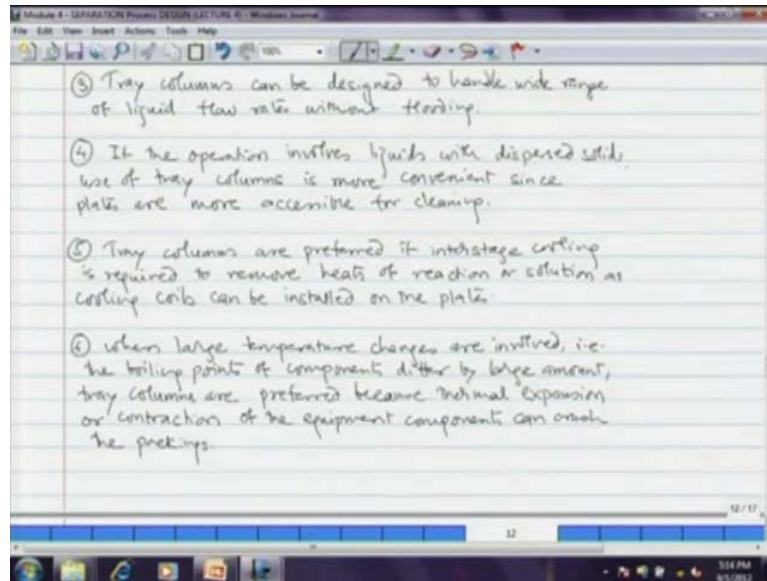 Module 4 - SEPARATION Process DESIGN (LECTURE 4) - Windows Journal
File Edit View Insert Actions Tools Help
100%
③ Tray columns can be designed to handle wide range
of liquid flow rates without flooding.
④ If the operation involves liquids with dispersed solids,
use of tray columns is more convenient since
plates are more accessible for cleaning.
⑤ Tray columns are preferred if interstage cooling
is required to remove heats of reaction or solution as
cooling coils can be installed on the plates.
⑥ when large temperature changes are involved, i.e.
the boiling points of components differ by large amount,
tray columns are preferred because thermal expansion
or contraction of the equipment components can crush
the packings.
12/17
12
5:14 PM